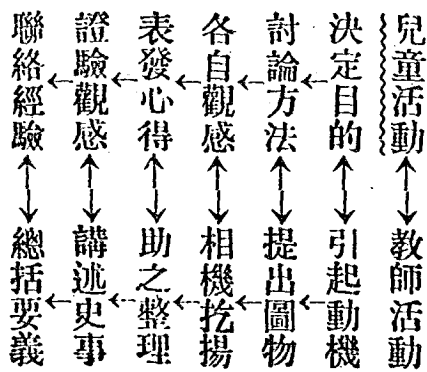 兒童活動 教師活動
決定目的 引起動機
討論方法 提出圖物
各自觀感 相機扢揚
表發心得 助之整理
證驗觀感 講述史事
聯絡經驗 總括要義